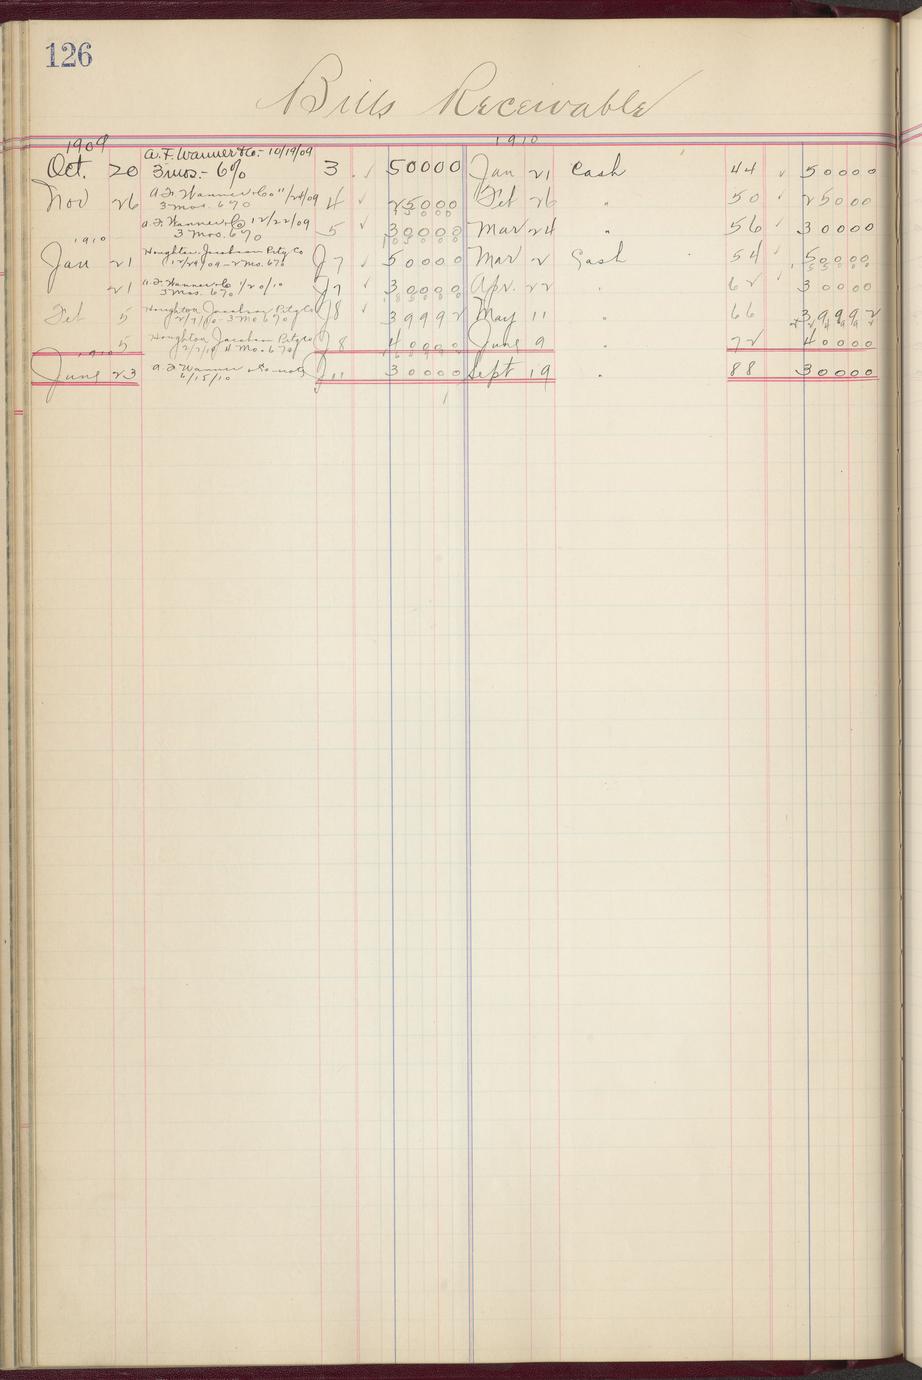 126
Bills Receivable
1909 1910
Oct. 20 A. F. Wanner & Co. - 10/19/09 3 ✓ 50000 Jan 21 Cash 44 ✓ 50000
3 mos. - 6%
Nov 26 A. F. Wanner & Co 11/24/09 4 ✓ 25000 Feb 26 " 50 ✓ 25000
3 mos. 6%
A. F. Wanner & Co 12/22/09 5 ✓ 30000 Mar 24 " 56 ✓ 30000
3 mos. 6%
1910
Jan 21 Houghton Jacobson Ptg Co J7 ✓ 50000 Mar 2 Cash 54 ✓ 50000
12/29/09 - 2 Mos. 6%
21 A. F. Wanner & Co 1/20/10 J7 ✓ 30000 Apr. 22 " 62 ✓ 30000
3 mos. 6%
Feb 5 Houghton Jacobson Ptg Co J8 ✓ 39992 May 11 " 66 39992
3 Mo 6%
5 Houghton Jacobson Ptg Co J8 40000 June 9 " 72 40000
4 Mo. 6%
1910
June 23 A. F. Wanner & Co J11 30000 Sept 19 " 88 30000
6/15/10